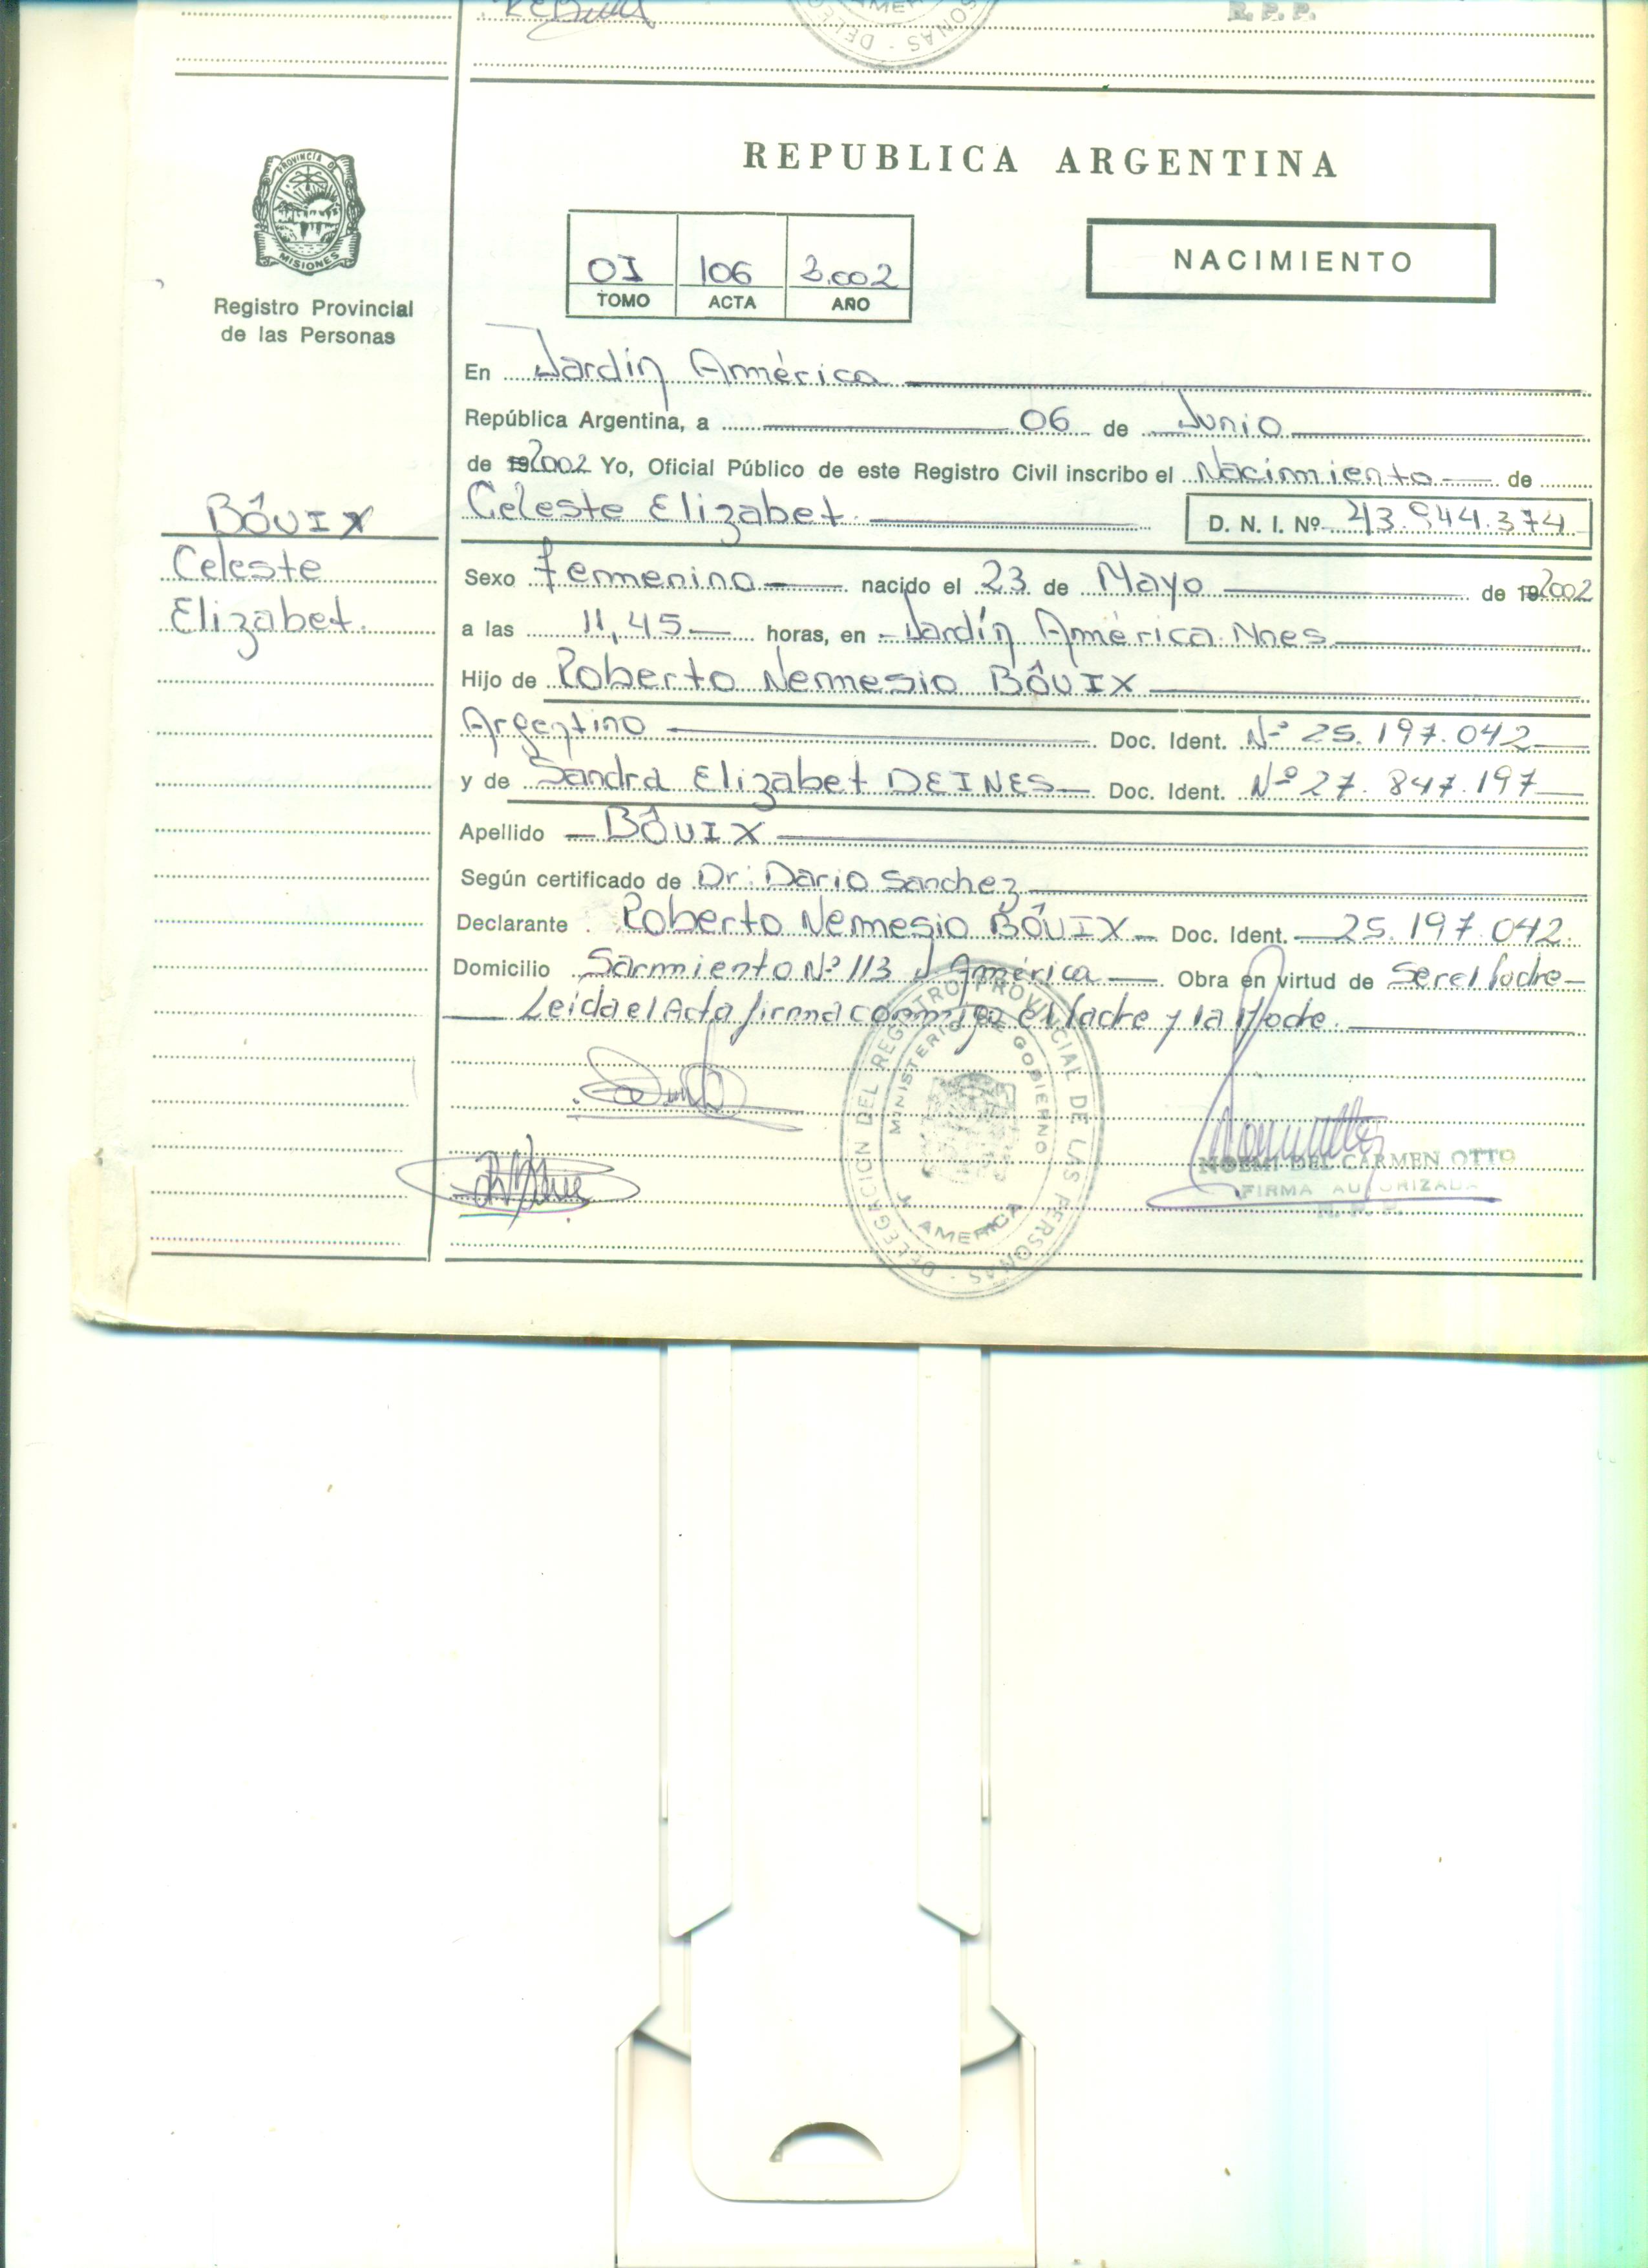 AMER
SONAS - DELEG
R. P. P.
PROVINCIA D
MISIONES
Registro Provincial
de las Personas
BÔUIX
Celeste
Elizabet.
REPUBLICA ARGENTINA
OI 106 2.002
TOMO ACTA AÑO
NACIMIENTO
En Jardín América
República Argentina, a 06 de Junio
de 19 2002 Yo, Oficial Público de este Registro Civil inscribo el Nacimiento de
Celeste Elizabet. D. N. I. Nº 43.944.374
Sexo femenino nacido el 23 de Mayo de 19 2002
a las 11,45 horas, en Jardín América. Mnes
Hijo de Roberto Nemesio BÔUIX
Argentino Doc. Ident. Nº 25.197.042
y de Sandra Elizabet DEINES Doc. Ident. Nº 27.847.197
Apellido BÔUIX
Según certificado de Dr: Dario Sanchez
Declarante Roberto Nemesio BÔUIX Doc. Ident. 25.197.042.
Domicilio Sarmiento Nº 113 J América Obra en virtud de Ser el Padre
Leida el Acta firma conmigo el Padre y la Madre.
DELEGACION DEL REGISTRO PROVINCIAL DE LAS PERSONAS
MINISTERIO DE GOBIERNO
AMERICA
NOEMI DEL CARMEN OTTO
FIRMA AUTORIZADA
R. P. P.